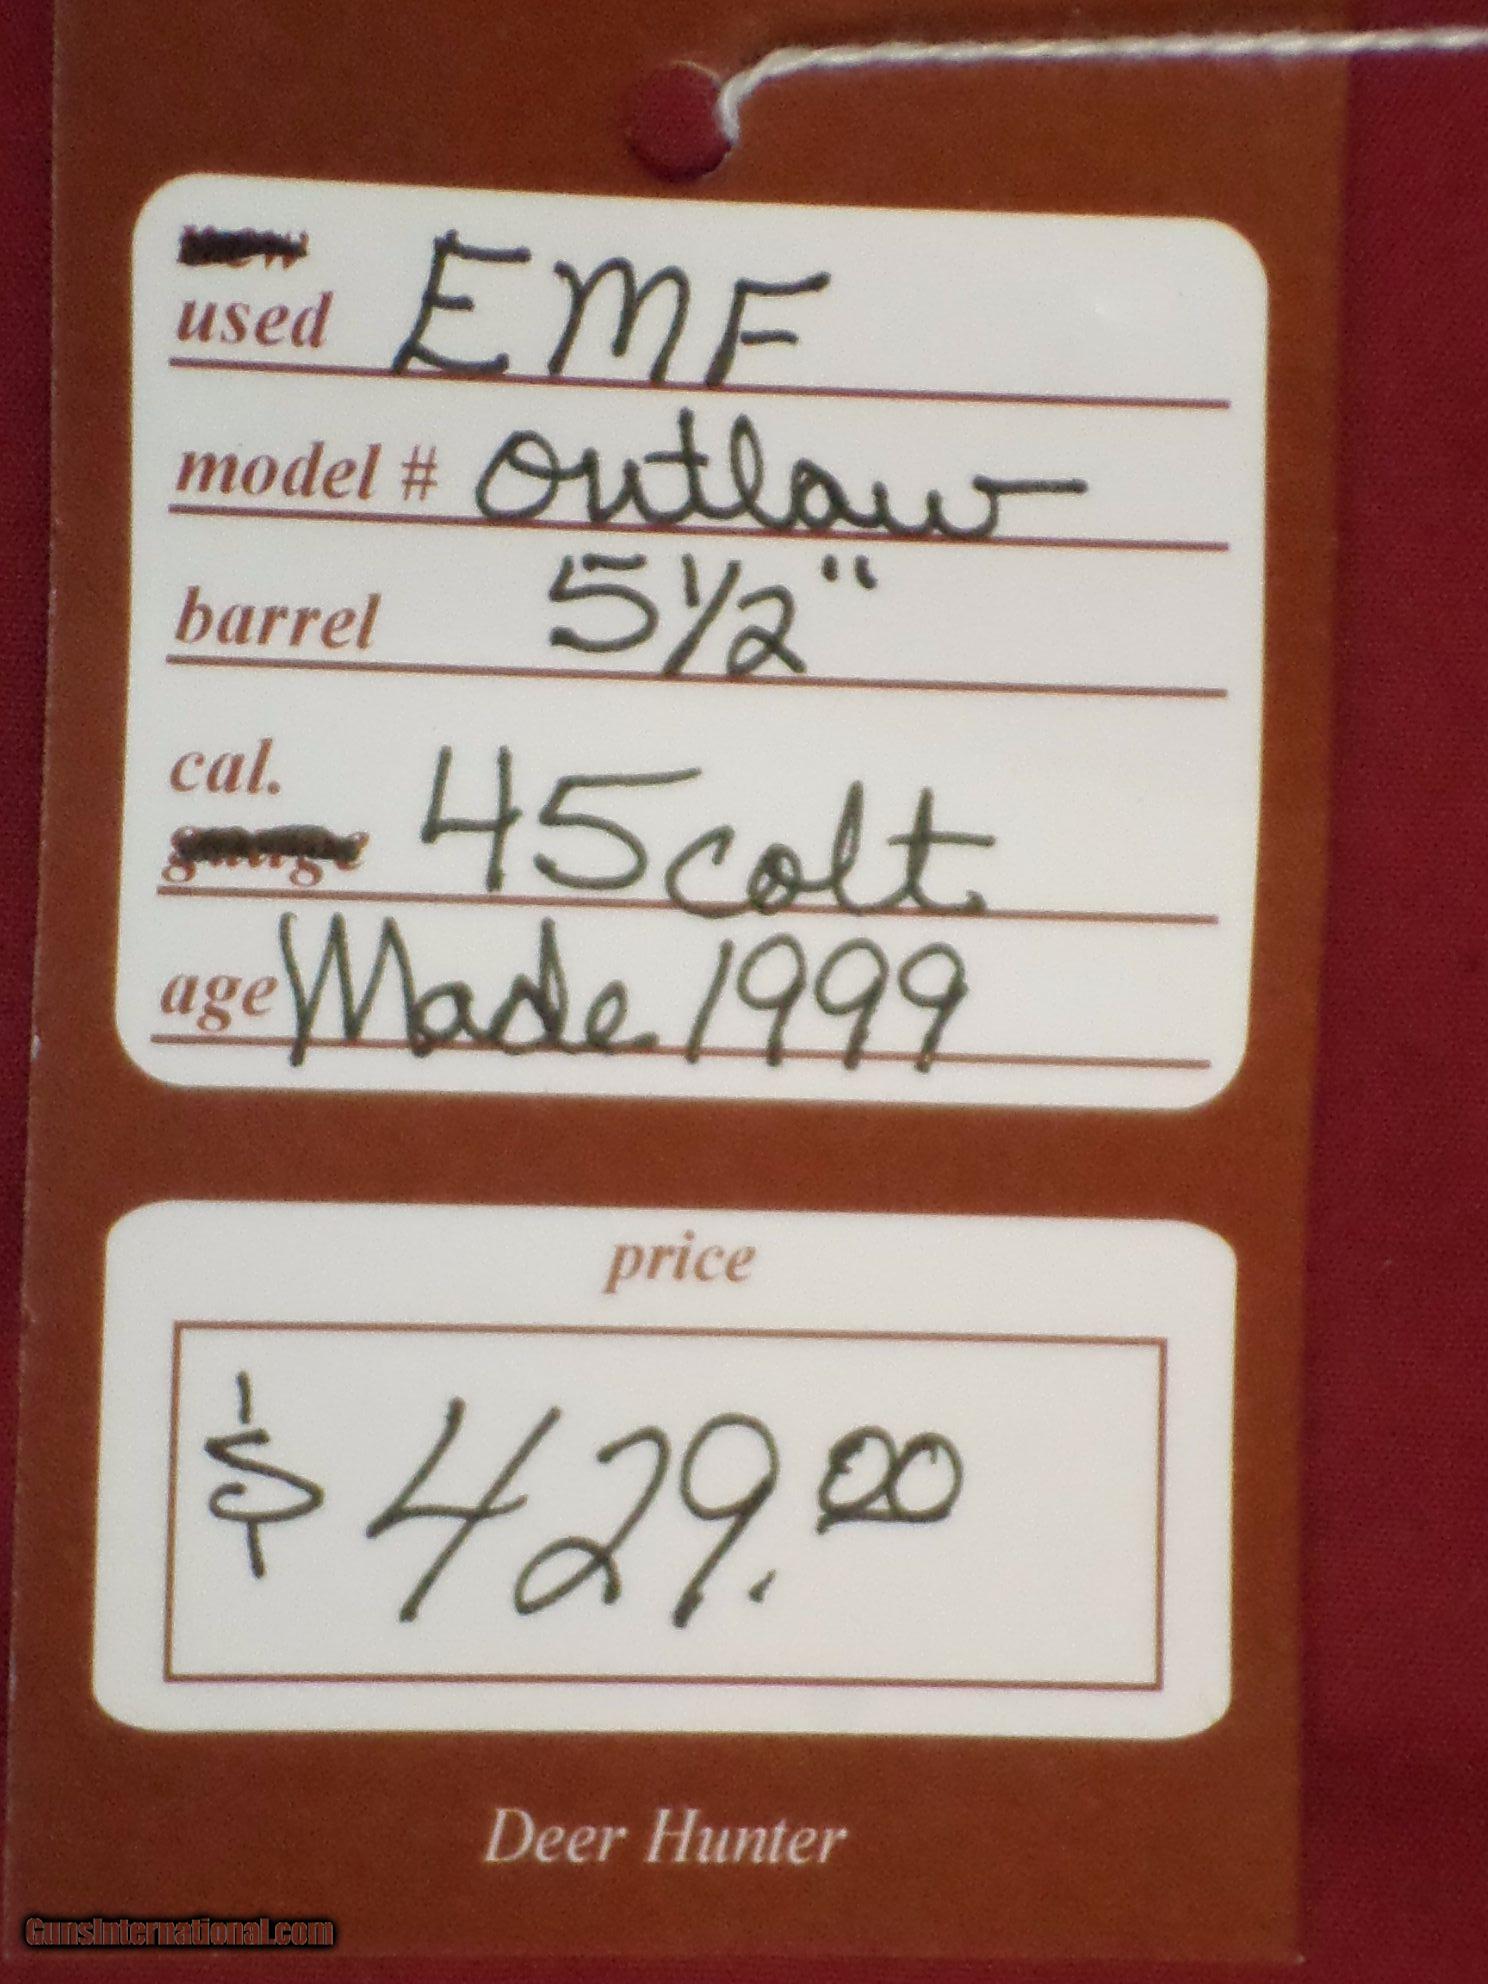 new
used EMF
model # outlaw
barrel 5 1/2"
cal. 45 colt
gauge
age Made 1999
price
$429.00
Deer Hunter
GunsInternational.com